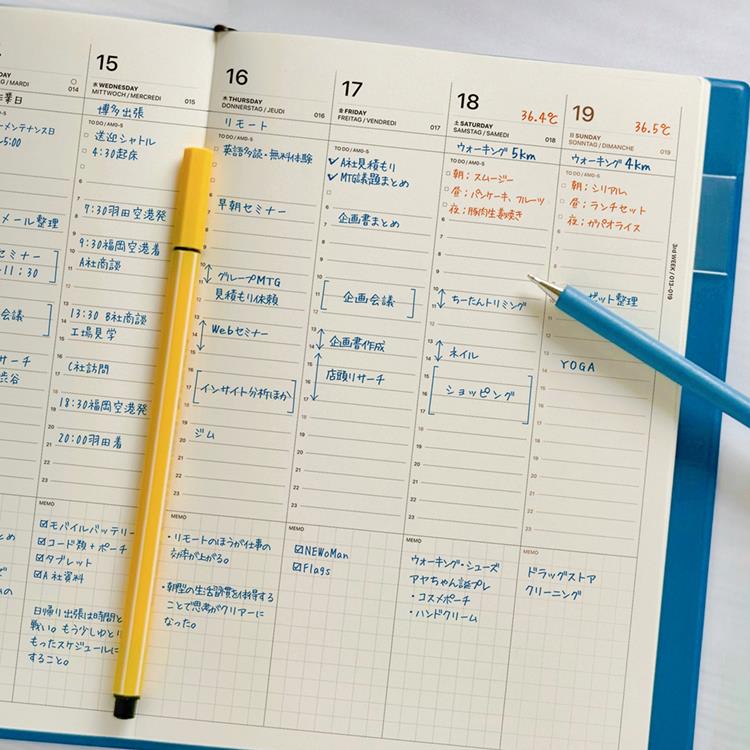 15
水 WEDNESDAY
MITTWOCH / MERCREDI
015
博多出張
TO DO / AM0-5
送迎シャトル
4:30起床
7:30羽田空港発
9:30福岡空港着
A社商談
13:30 B社商談
工場見学
C社訪問
18:30福岡空港発
20:00羽田着
MEMO
モバイルバッテリー
コード類+ポーチ
タブレット
A社資料
日帰り出張は時間と
戦い。もう少しゆとり
もったスケジュールに
すること。
16
木 THURSDAY
DONNERSTAG / JEUDI
016
リモート
TO DO / AM0-5
英語多読・無料体験
6
7
早朝セミナー
8
9
10
グループMTG
11
見積もり依頼
12
13
Webセミナー
14
15
16
インサイト分析ほか
17
18
19
ジム
20
21
22
23
MEMO
・リモートのほうが仕事の
効率が上がる。
・朝型の生活習慣を体得する
ことで思考がクリアーに
なった。
17
金 FRIDAY
FREITAG / VENDREDI
017
TO DO / AM0-5
A社見積もり
MTG議題まとめ
6
企画書まとめ
7
8
9
10
11
企画会議
12
13
企画書作成
14
15
店頭リサーチ
16
17
18
19
20
21
22
23
MEMO
NEWoMan
Flags
18
36.4℃
土 SATURDAY
SAMSTAG / SAMEDI
018
ウォーキング 5km
TO DO / AM0-5
朝:スムージー
昼:パンケーキ、フルーツ
夜:豚肉生姜焼き
6
7
8
9
10
ちーたんトリミング
11
12
13
ネイル
14
15
16
ショッピング
17
18
19
20
21
22
23
MEMO
ウォーキング・シューズ
アヤちゃん誕プレ
・コスメポーチ
・ハンドクリーム
19
36.5℃
日 SUNDAY
SONNTAG / DIMANCHE
019
ウォーキング 4km
TO DO / AM0-5
朝:シリアル
昼:ランチセット
夜:ガパオライス
ゼット整理
YOGA
MEMO
ドラッグストア
クリーニング
3rd WEEK / 013-019
DAY
/ MARDI
014
業日
メンテナンス日
5:00
メール整理
セミナー
11:30
会議
サーチ
渋谷